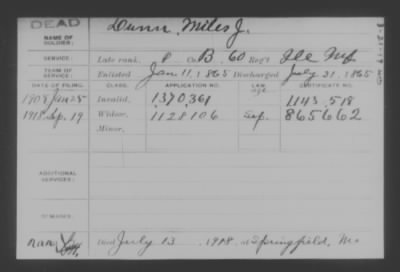 DEAD
NAME OF SOLDIER: Dunn, Miles J.
SERVICE: Late rank, P Co. B, 60 Reg't Ill Inf
TERM OF SERVICE: Enlisted Jan 11, 1865 Discharged July 31, 1865
DATE OF FILING. CLASS. APPLICATION NO. LAW. CERTIFICATE NO.
1908 Jan 25 Invalid, 1370,361 1143,518
1918 Sep. 19 Widow, 1128106 865662
Minor,
ADDITIONAL SERVICES:
REMARKS:
Died July 13 1918 at Springfield, Mo